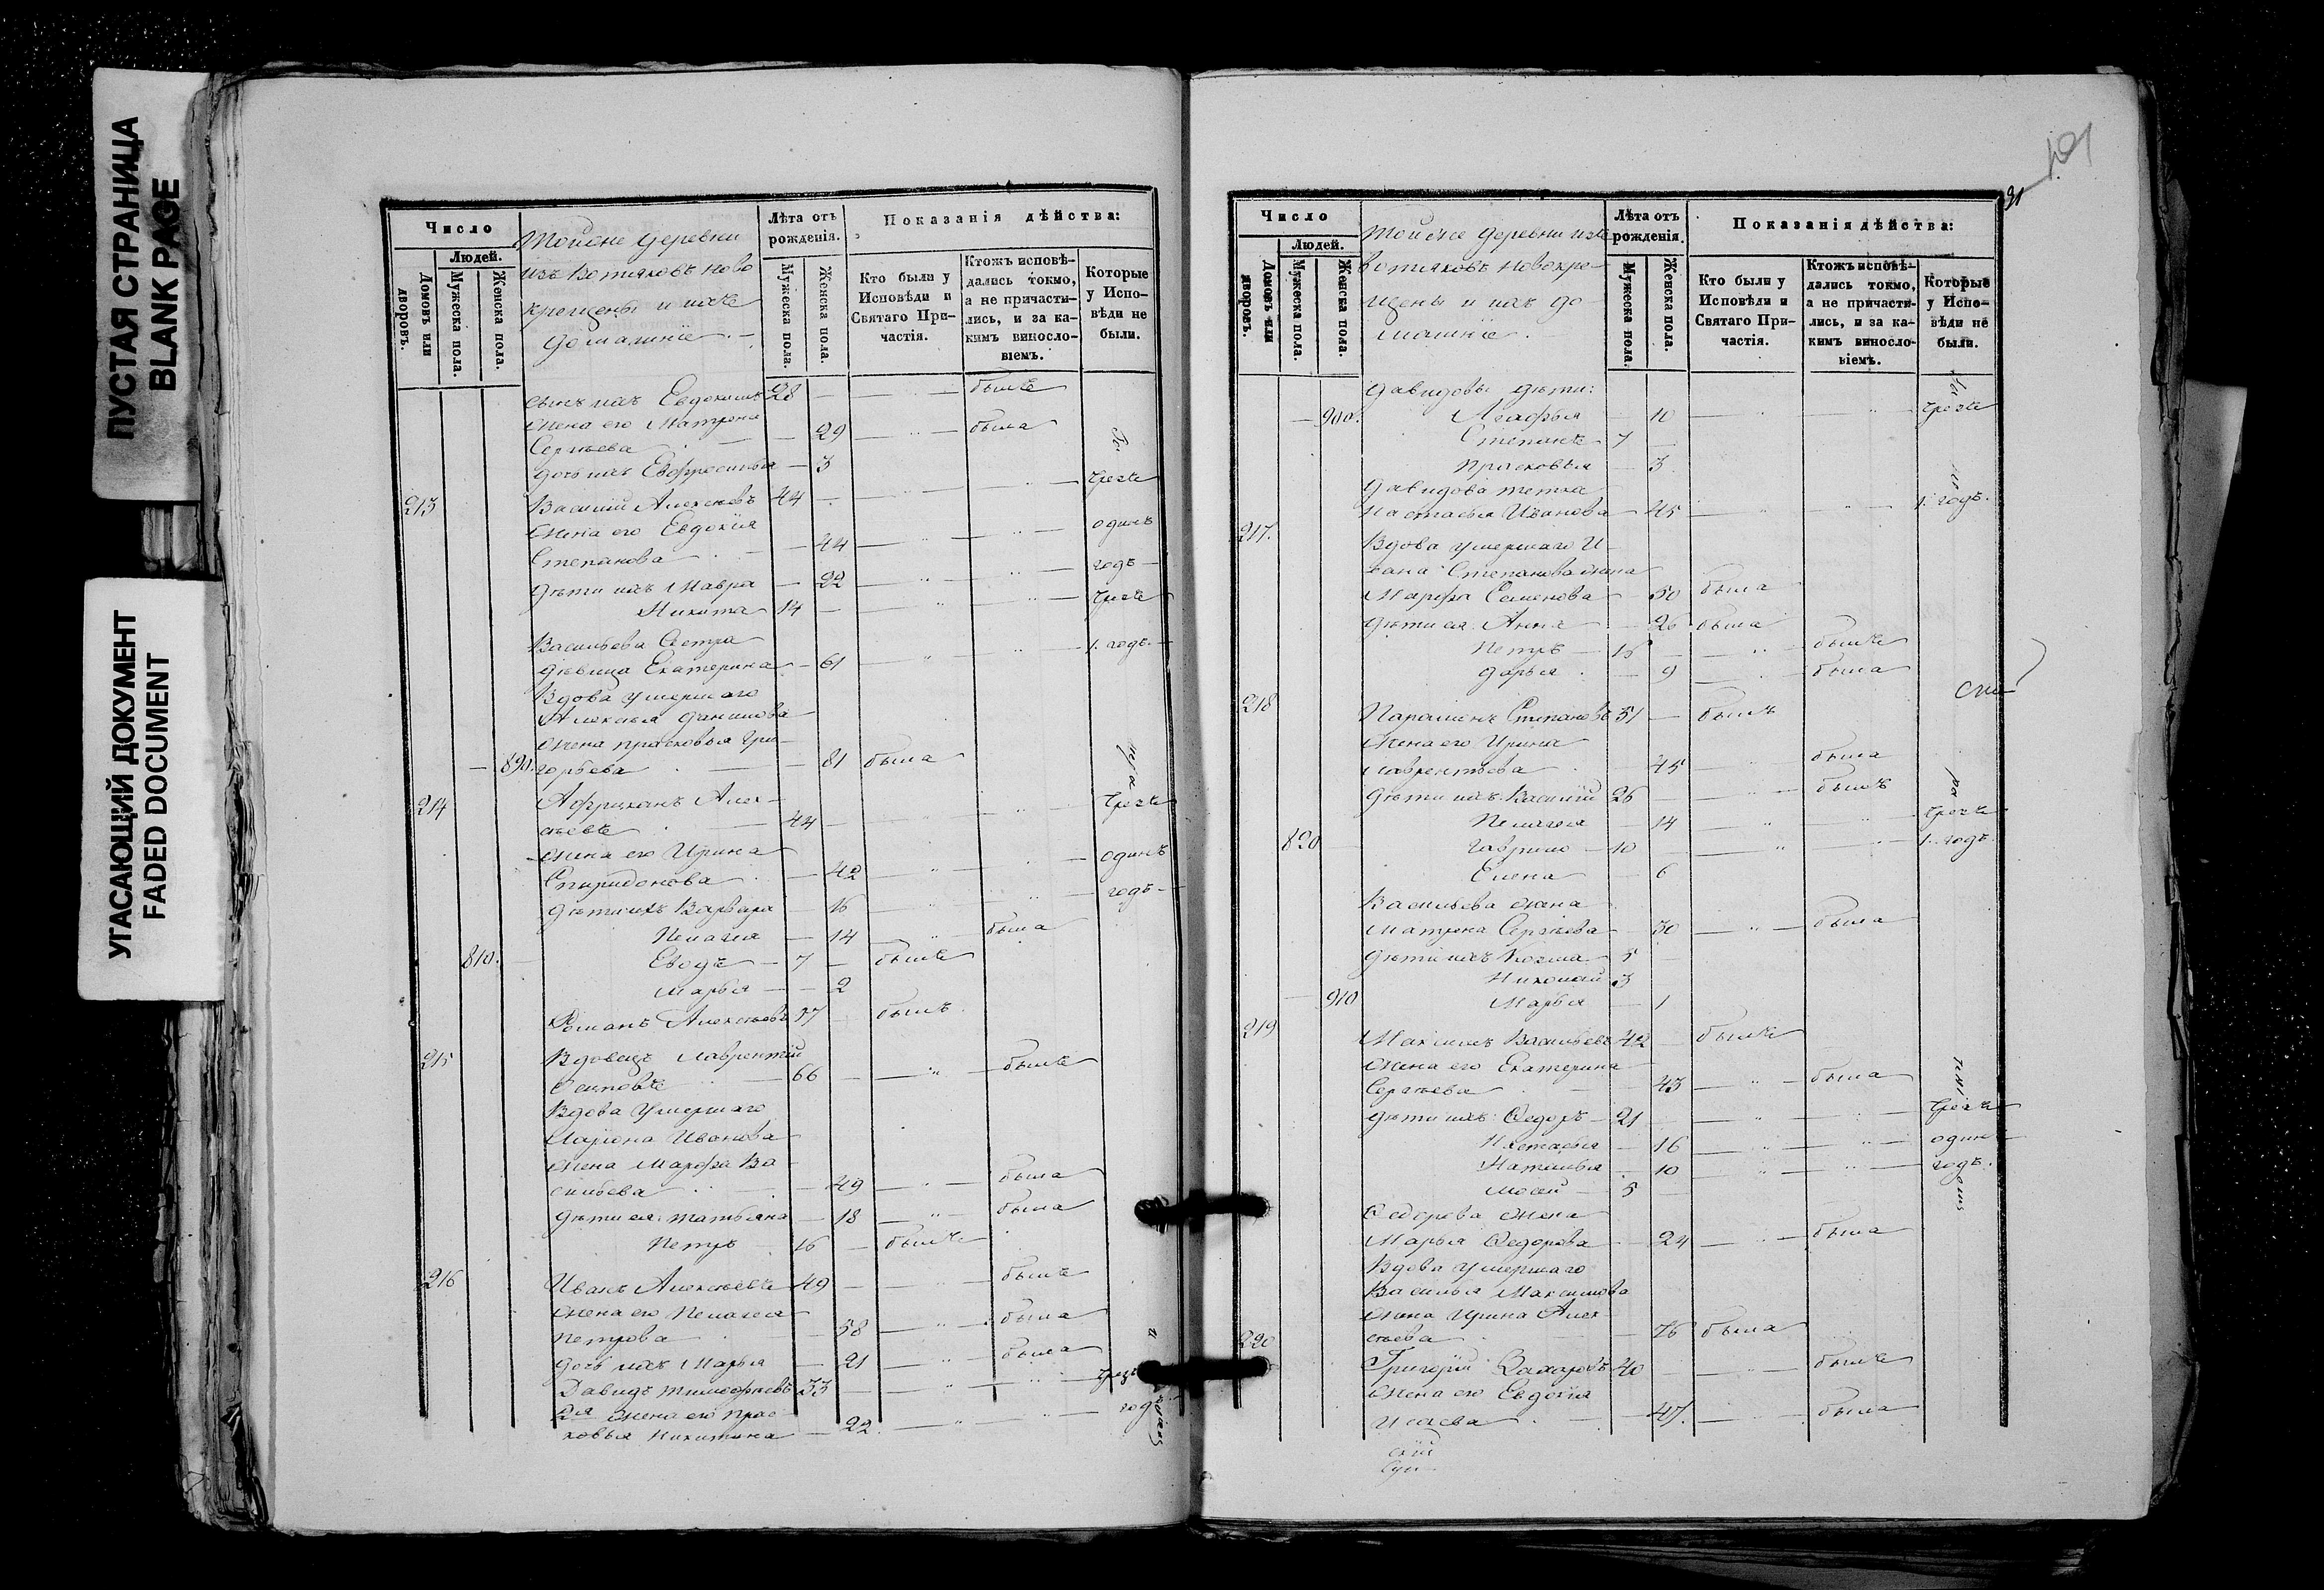 ПУСТАЯ СТРАНИЦА
BLANK PAGE
УГАСАЮЩИЙ ДОКУМЕНТ
FADED DOCUMENT
Число
Людей.
Домовъ или дворовъ.
Мужеска пола.
Женска пола.
Тойже деревни
изъ Вотяковъ ново
крещены и ихъ
домашніе.
Лѣта отъ рожденія.
Мужеска пола.
Женска пола.
Показанія дѣйства:
Кто были у Исповѣди и Святаго Причастія.
Ктожъ исповѣ-
дались токмо,
а не причасти-
лись, и за ка-
кимъ винословіемъ.
Которые
у Испо-
вѣди не
были.
сынъ ихъ Евдокимъ 28 — — былъ
Жена его Матрена
Сергѣева — 29 — была
дочь ихъ Евфросинья — 3
213 Василій Алексѣевъ 44 — — чрезъ
Жена его Евдокія
Степанова — 44 — одинъ
дѣти ихъ Мавра — 22 — годъ
Никита 14 — — чрезъ
Васильева Сестра
дѣвица Екатерина — 61 — 1. годъ.
Вдова умершаго
Алексѣя Данилова
жена Прасковья Гри-
890. горьева — 81 была
214 Африканъ Алек-
сѣевъ 44 — — чрезъ
Жена его Ирина
Спиридонова — 42 — одинъ
дѣти ихъ Варвара — 16 — годъ
Пелагея — 14 — была
810. Еводъ — 7 — былъ
Марья — 2
Романъ Алексѣевъ 37 былъ
215 Вдовецъ Лаврентій
Осиповъ 66 — — былъ
Вдова умершаго
Ларіона Иванова
жена Марфа Ва-
сильева — 49 — была
дѣти ея: Татьяна — 18 — была
Петръ 16 — былъ
216 Иванъ Алексѣевъ 49 — — былъ
Жена его Пелагея
Петрова — 58 — была
дочь ихъ Марья — 21 — была
Давидъ Тимофеевъ 33 — — чрезъ
2я жена его Прас-
ковья Никитина — 22. — годъ
101
91
Число
Людей.
Домовъ или дворовъ.
Мужеска пола.
Женска пола.
Тойже деревни изъ
Вотяковъ новокре-
щены и ихъ до-
машніе.
Лѣта отъ рожденія.
Мужеска пола.
Женска пола.
Показанія дѣйства:
Кто были у Исповѣди и Святаго Причастія.
Ктожъ исповѣ-
дались токмо,
а не причасти-
лись, и за ка-
кимъ винословіемъ.
Которые
у Испо-
вѣди не
были.
Давидовы дѣти:
900. Агафья — 10 — чрезъ
Степанъ 7 —
Прасковья — 3
Давидова тетка
Настасья Иванова — 45 — 1. годъ.
217. Вдова умершаго И-
вана Степанова жена
Марфа Семенова — 50 была
дѣти ея: Анна — 26 была
Петръ — 15 — былъ
Дарья — 9 — была
218 Парамонъ Степановъ 51 — былъ
Жена его Ирина
Лаврентьева — 45 — была
дѣти ихъ: Василій 26 — былъ
Пелагея — 14 — чрезъ
820 Гаврило — 10 — 1. годъ
Елена — 6
Васильева жена
Матрена Сергѣева — 30 — была
дѣти ихъ Козма 5
Николай 3
910 Марья — 1
219 Максимъ Васильевъ 42 — былъ
Жена его Екатерина
Сергѣева — 43 — была
дѣти ихъ: Ѳедоръ — 21 — чрезъ
Настасья — 16 — одинъ
Наталья — 10 — годъ.
Мосей — 5
Ѳедорова жена
Марья Ѳедорова — 24 — была
Вдова умершаго
Василья Максимова
жена Ирина Алек-
сѣева — 76 была
220 Григорій Захаровъ 40 — былъ
Жена его Евдокія
Исаева — 47. — была